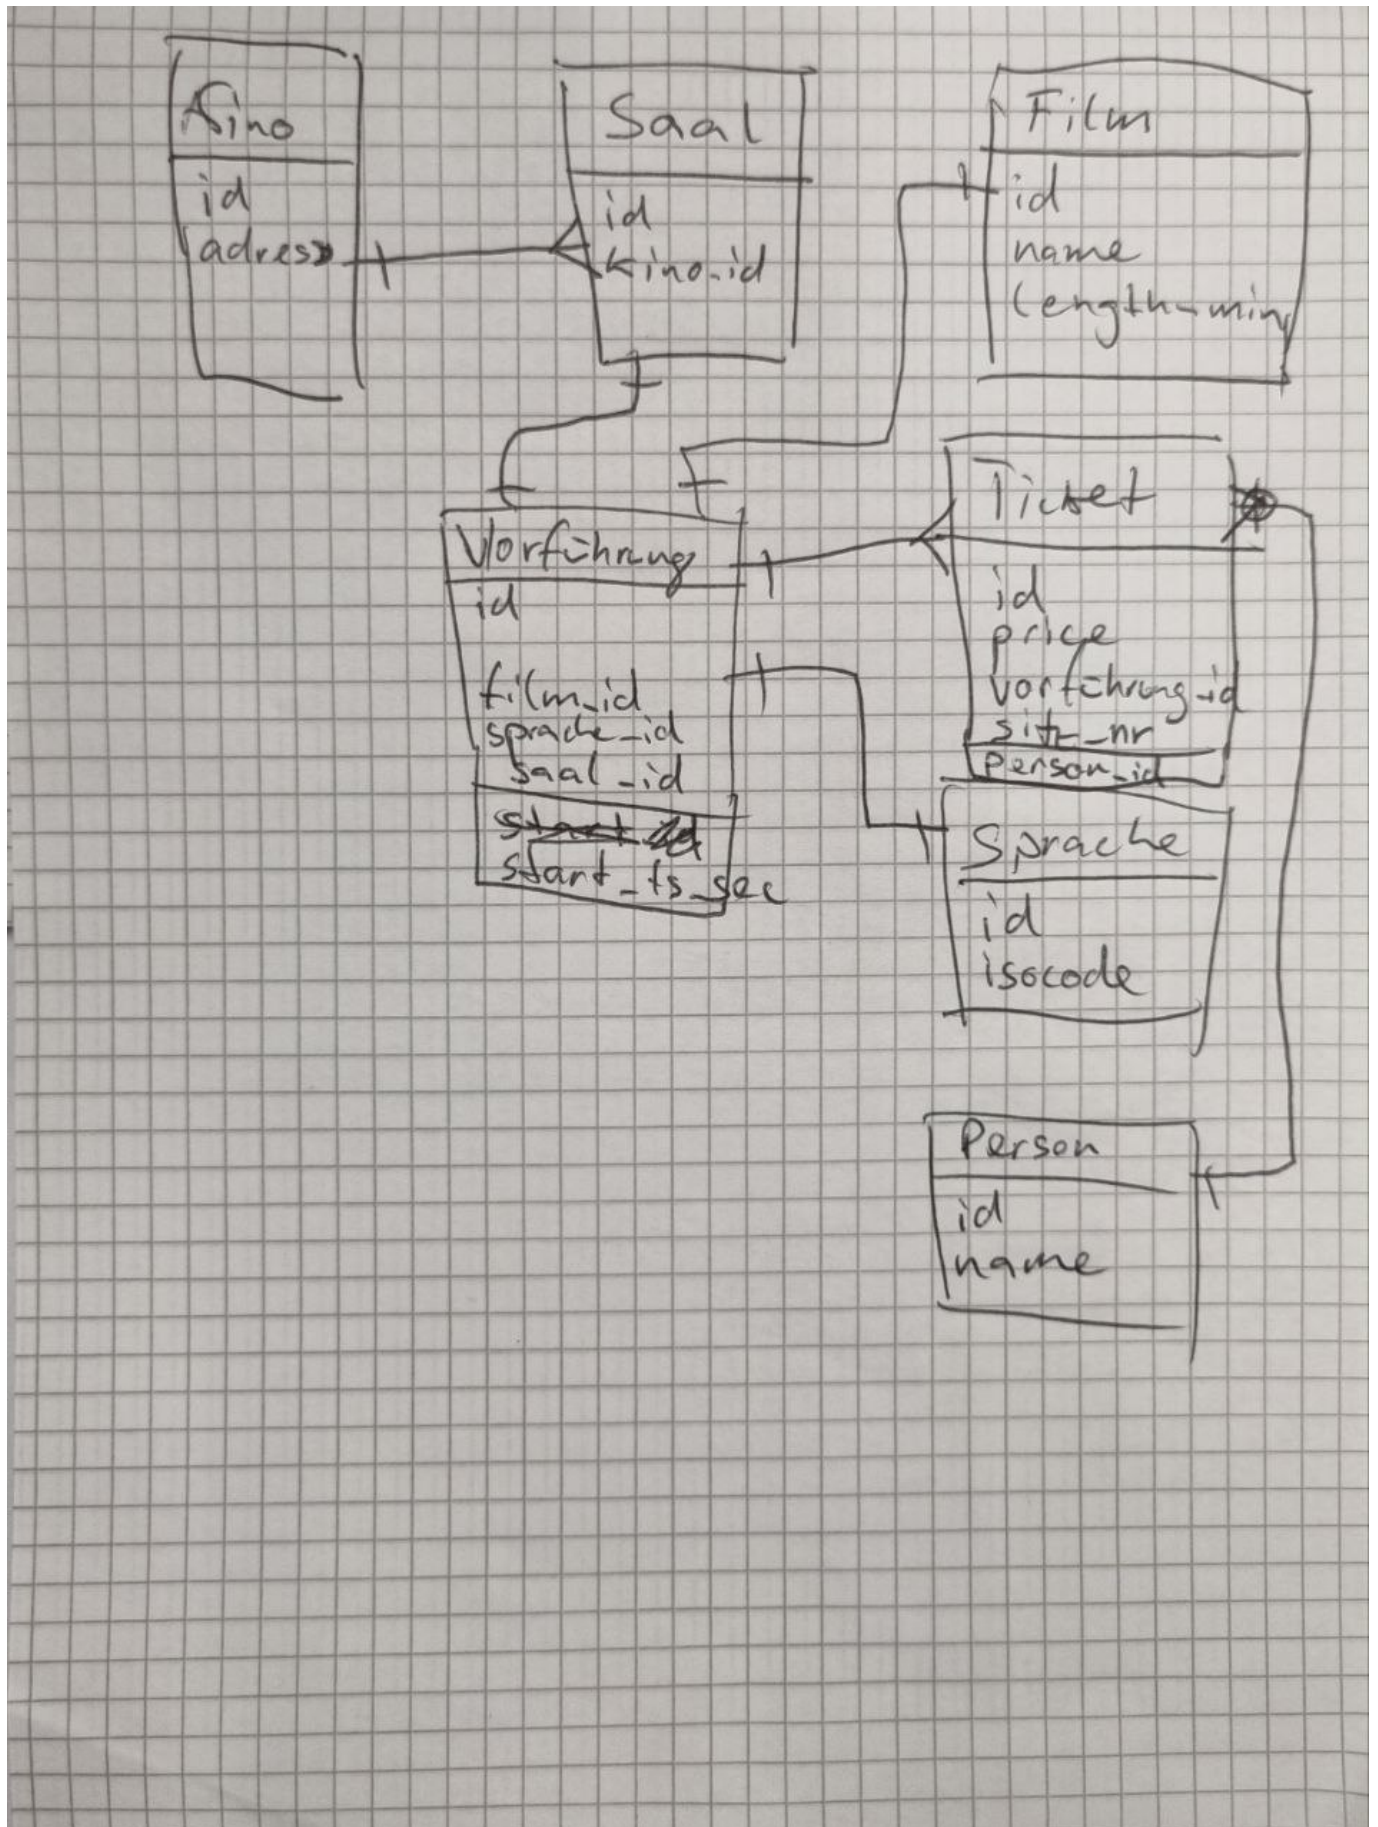 Kino
id
adress
Saal
id
kino_id
Film
id
name
length_min
Vorführung
id
film_id
sprache_id
saal_id
start_ts_sec
Ticket
id
price
vorführung_id
sitz_nr
person_id
Sprache
id
isocode
Person
id
name